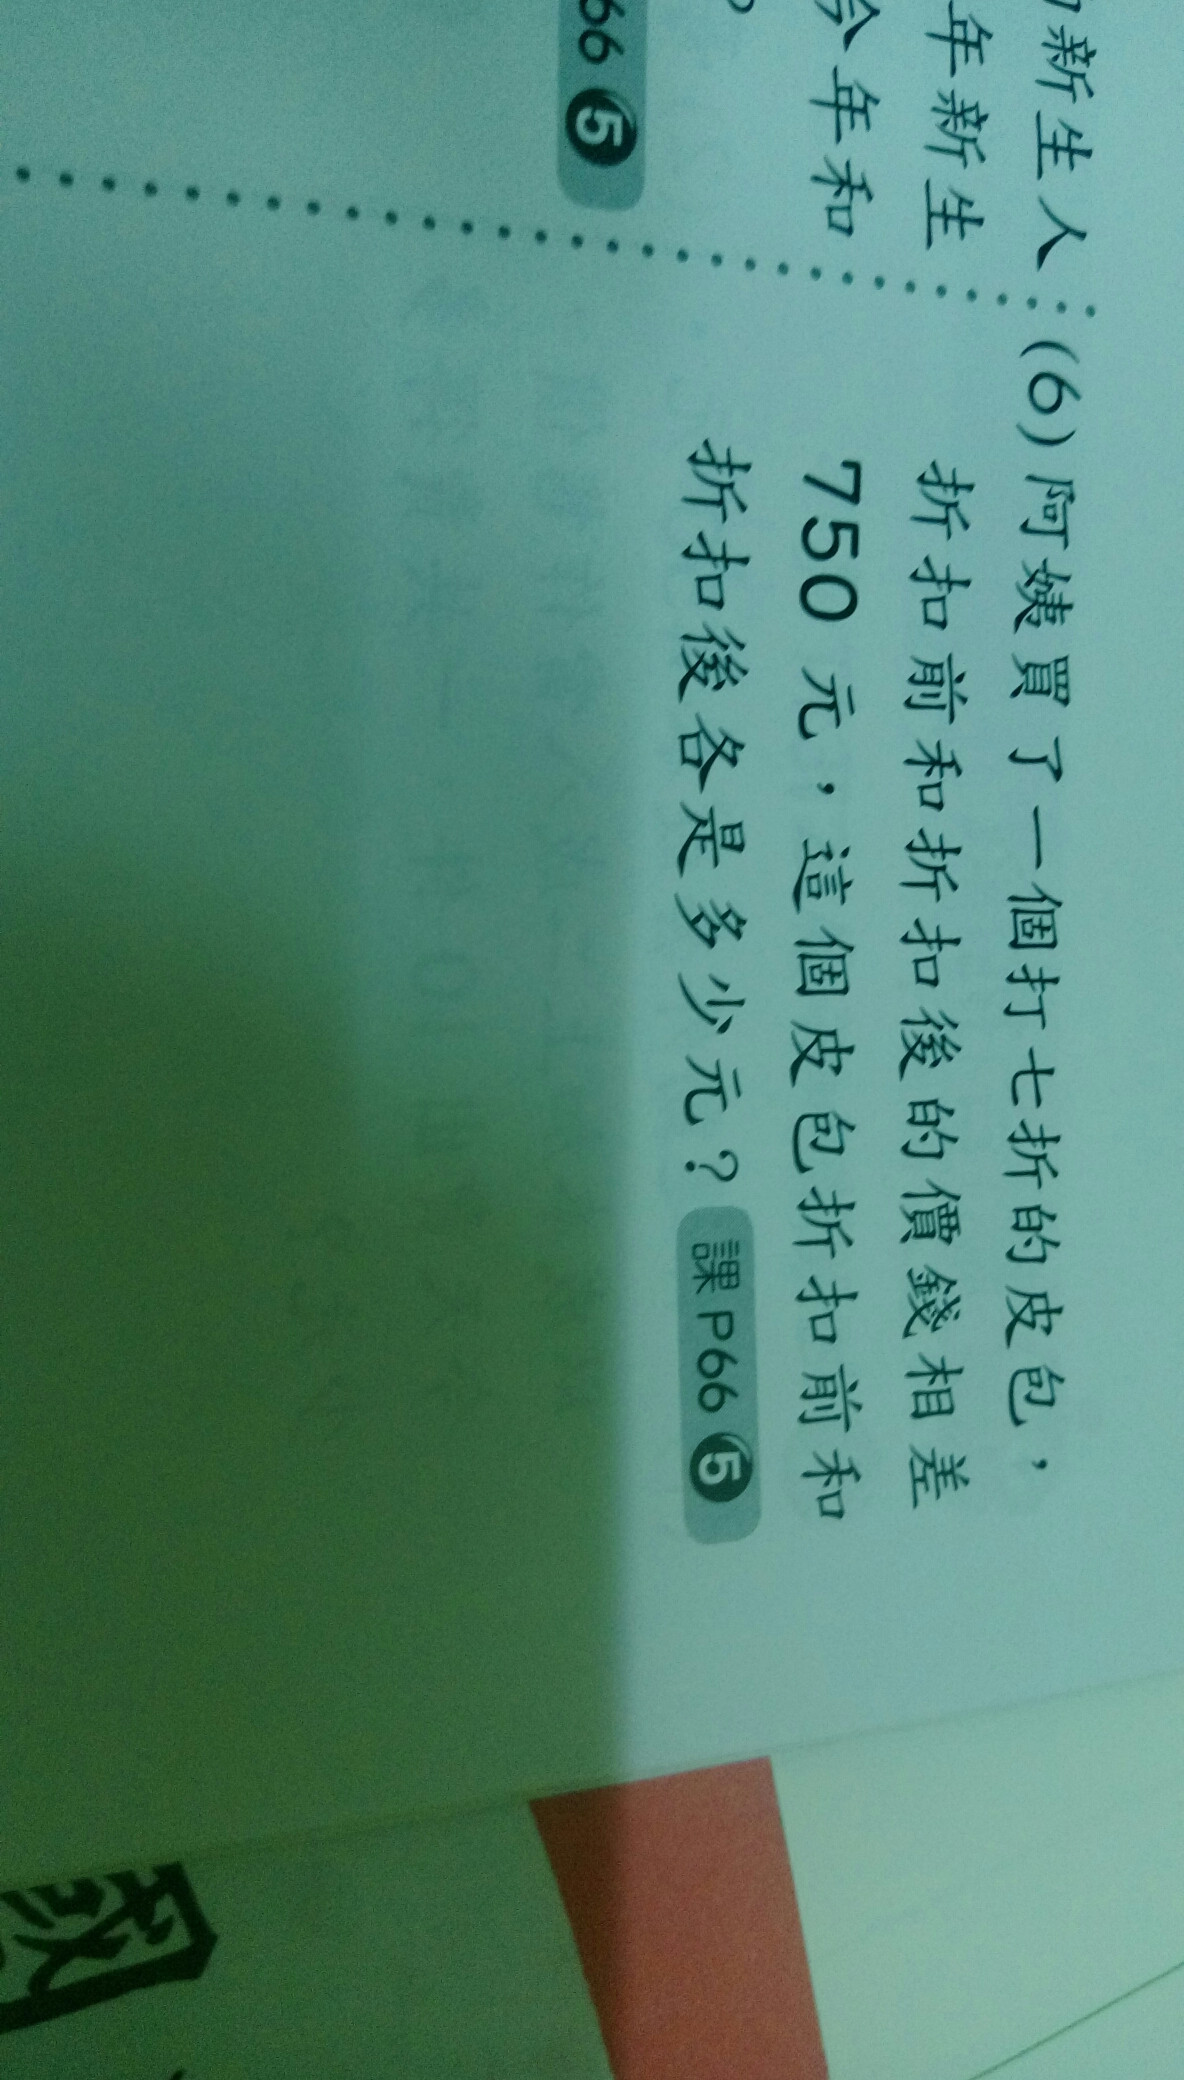 新生人
年新生
今年和
66 5
(6)阿姨買了一個打七折的皮包，
折扣前和折扣後的價錢相差
750元，這個皮包折扣前和
折扣後各是多少元？課P66 5